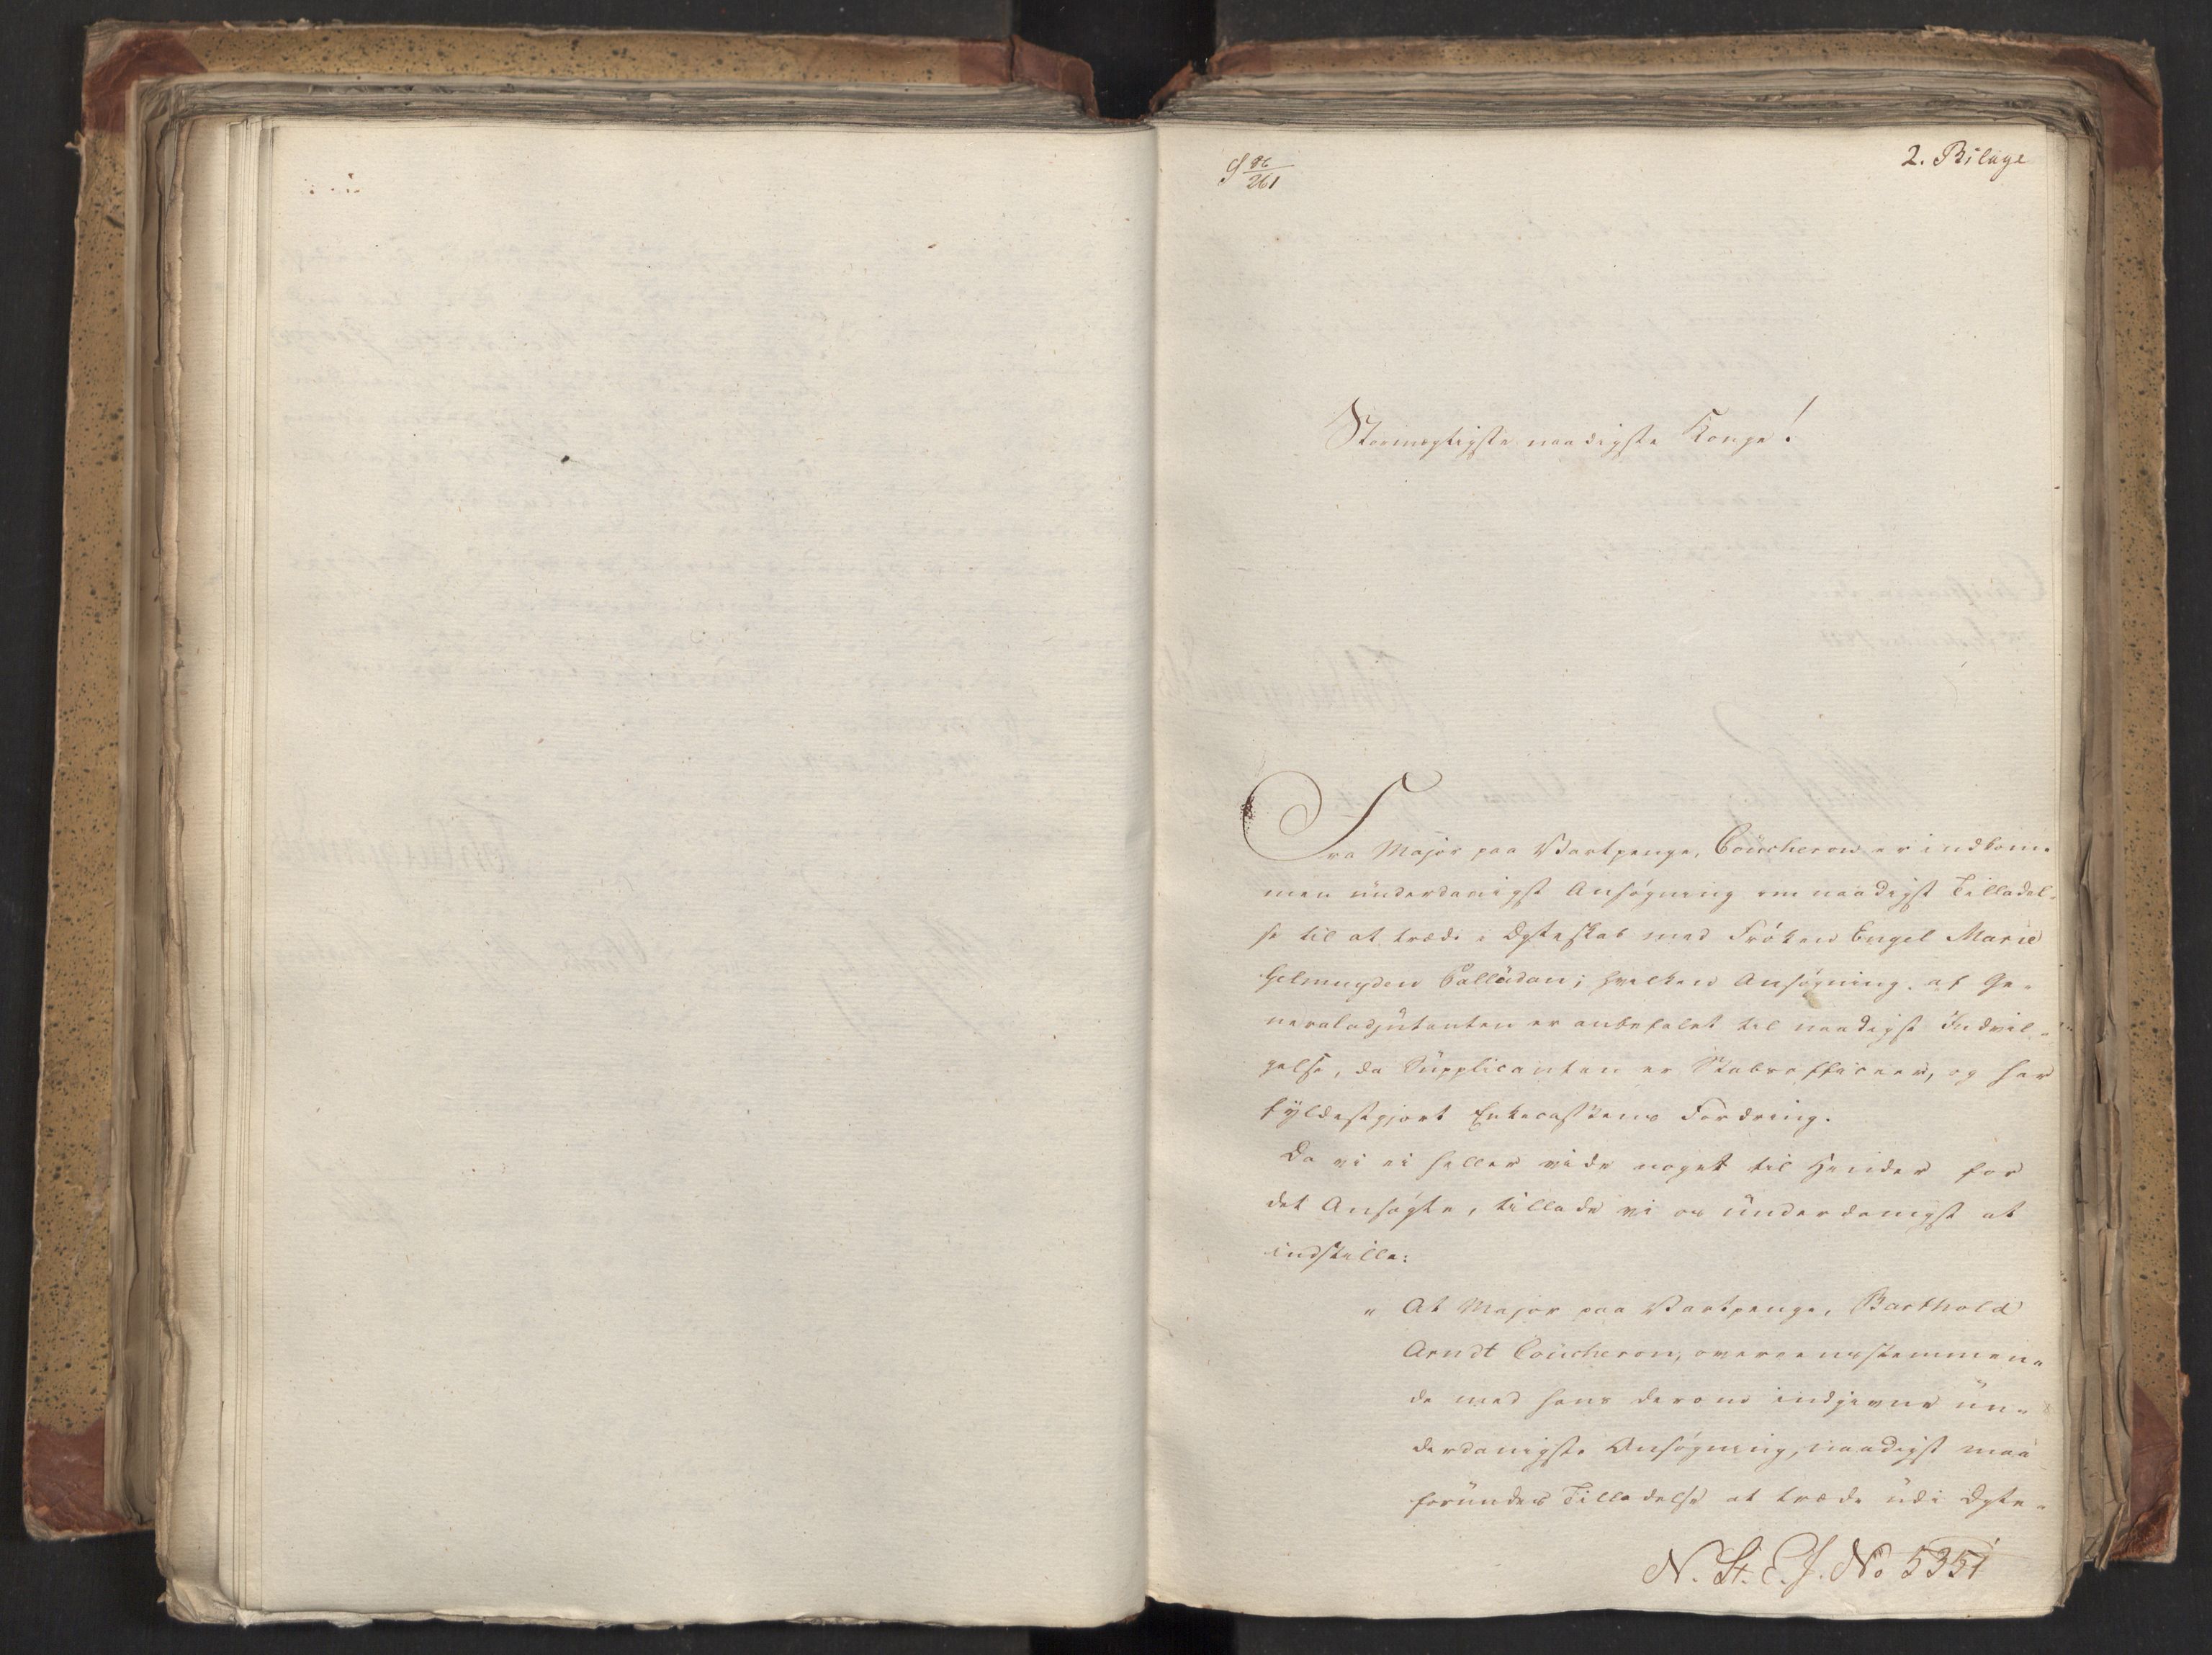 2. Bilage
261
Stormægtigste naadigste Konge!
Fra Major paa Vartpenge, Coucheron er indkom-
men underdanigst Ansøgning om naadigst Tilladel-
se til at træde i Ægteskab med Frøken Engel Marie
Gelmuyden Balludan; hvilken Ansøgning af Ge-
neraladjutanten er anbefalet til naadigst Indvil-
gelse, da Supplicanten er Stabsofficeer, og har
fyldestgjort Enkecassens Fordring.
Da vi ei heller vide noget til Hinder for
det Ansøgte, tillade vi os underdanigst at
indstille:
" At Major paa Vartpenge, Barthold
Arndt Coucheron, overeensstemmen-
de med hans derom indgivne un-
derdanigste Ansøgning, naadigst maa
forundes Tilladelse at træde udi Ægte-
N. St. E. J. No 5351